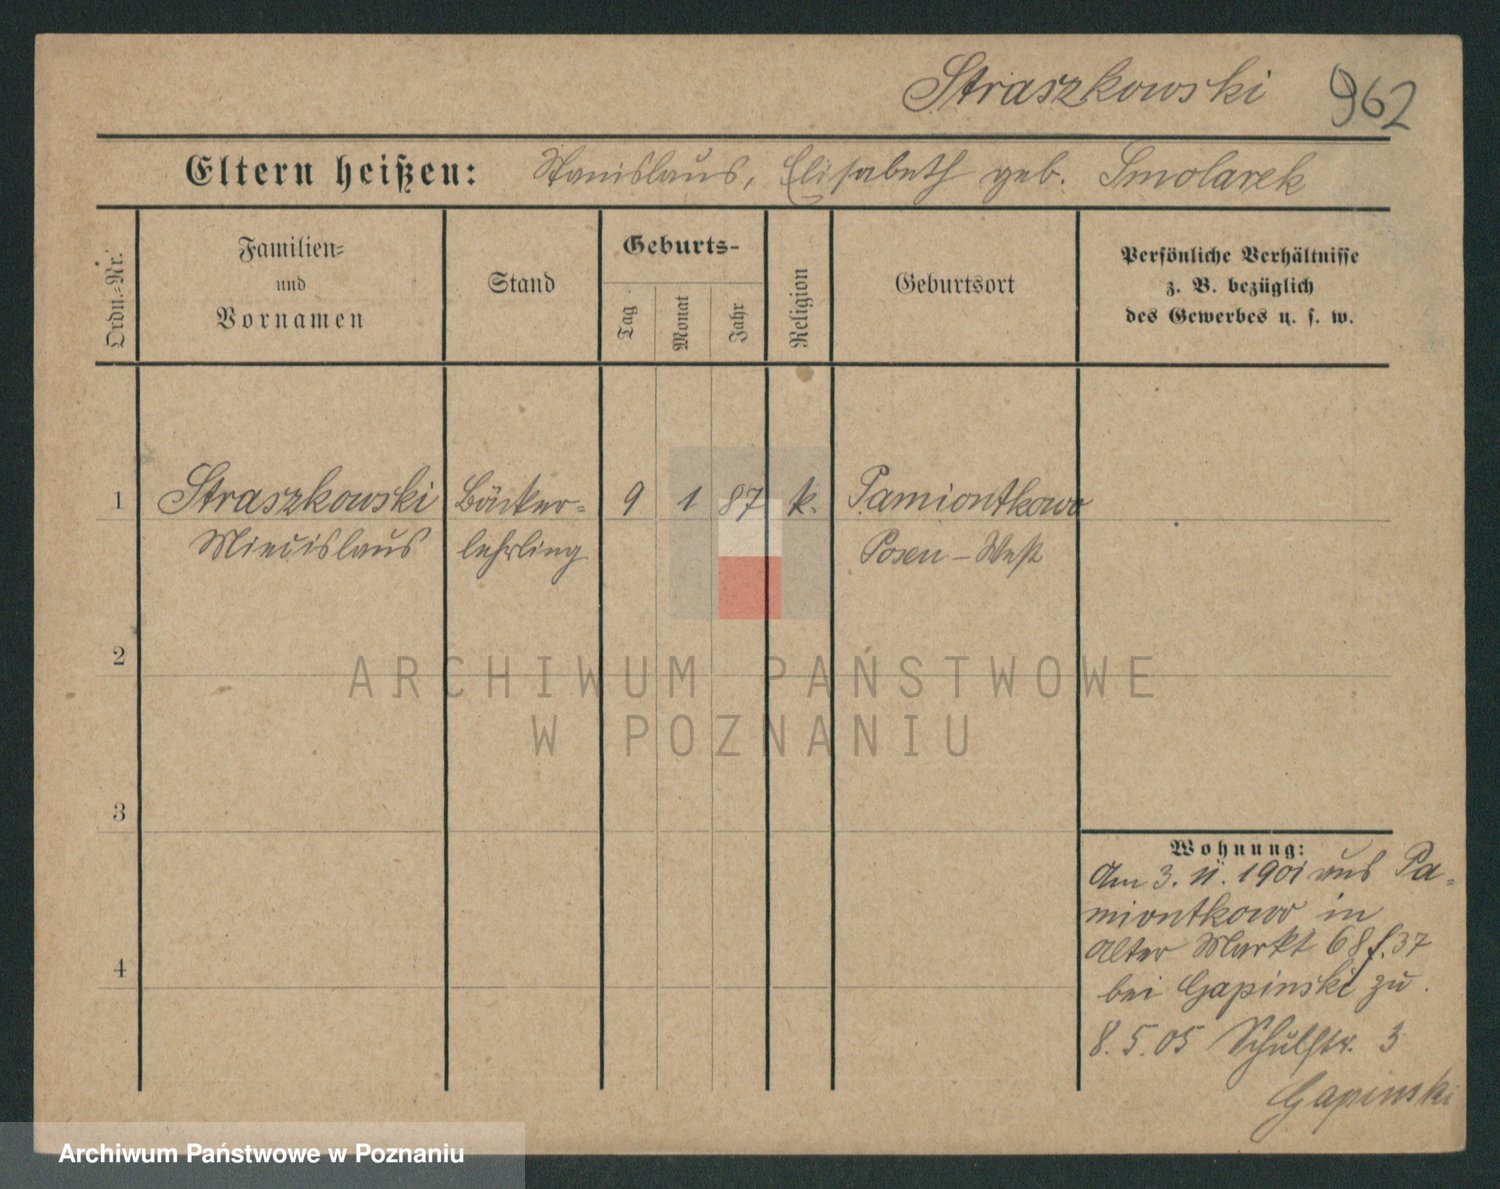 Straszkowski 962
Eltern heißen: Stanislaus, Elisabeth geb. Smolarek
Ordn.=Nr.
Familien=
und
Vornamen
Stand
Geburts-
Tag
Monat
Jahr
Religion
Geburtsort
Persönliche Verhältnisse
z. B. bezüglich
des Gewerbes u. s. w.
1 Straszkowski Bäcker= 9 1 87 k. Pamiontkowo
Miecislaus lehrling Posen-West
2
ARCHIWUM PAŃSTWOWE
W POZNANIU
3
4
Wohnung:
Am 3. 11. 1901 aus Pa=
miontkowo in
Alter Markt 68 f. 37
bei Gapinski zu.
8. 5. 05 Schulstr. 3
Gapinski
Archiwum Państwowe w Poznaniu